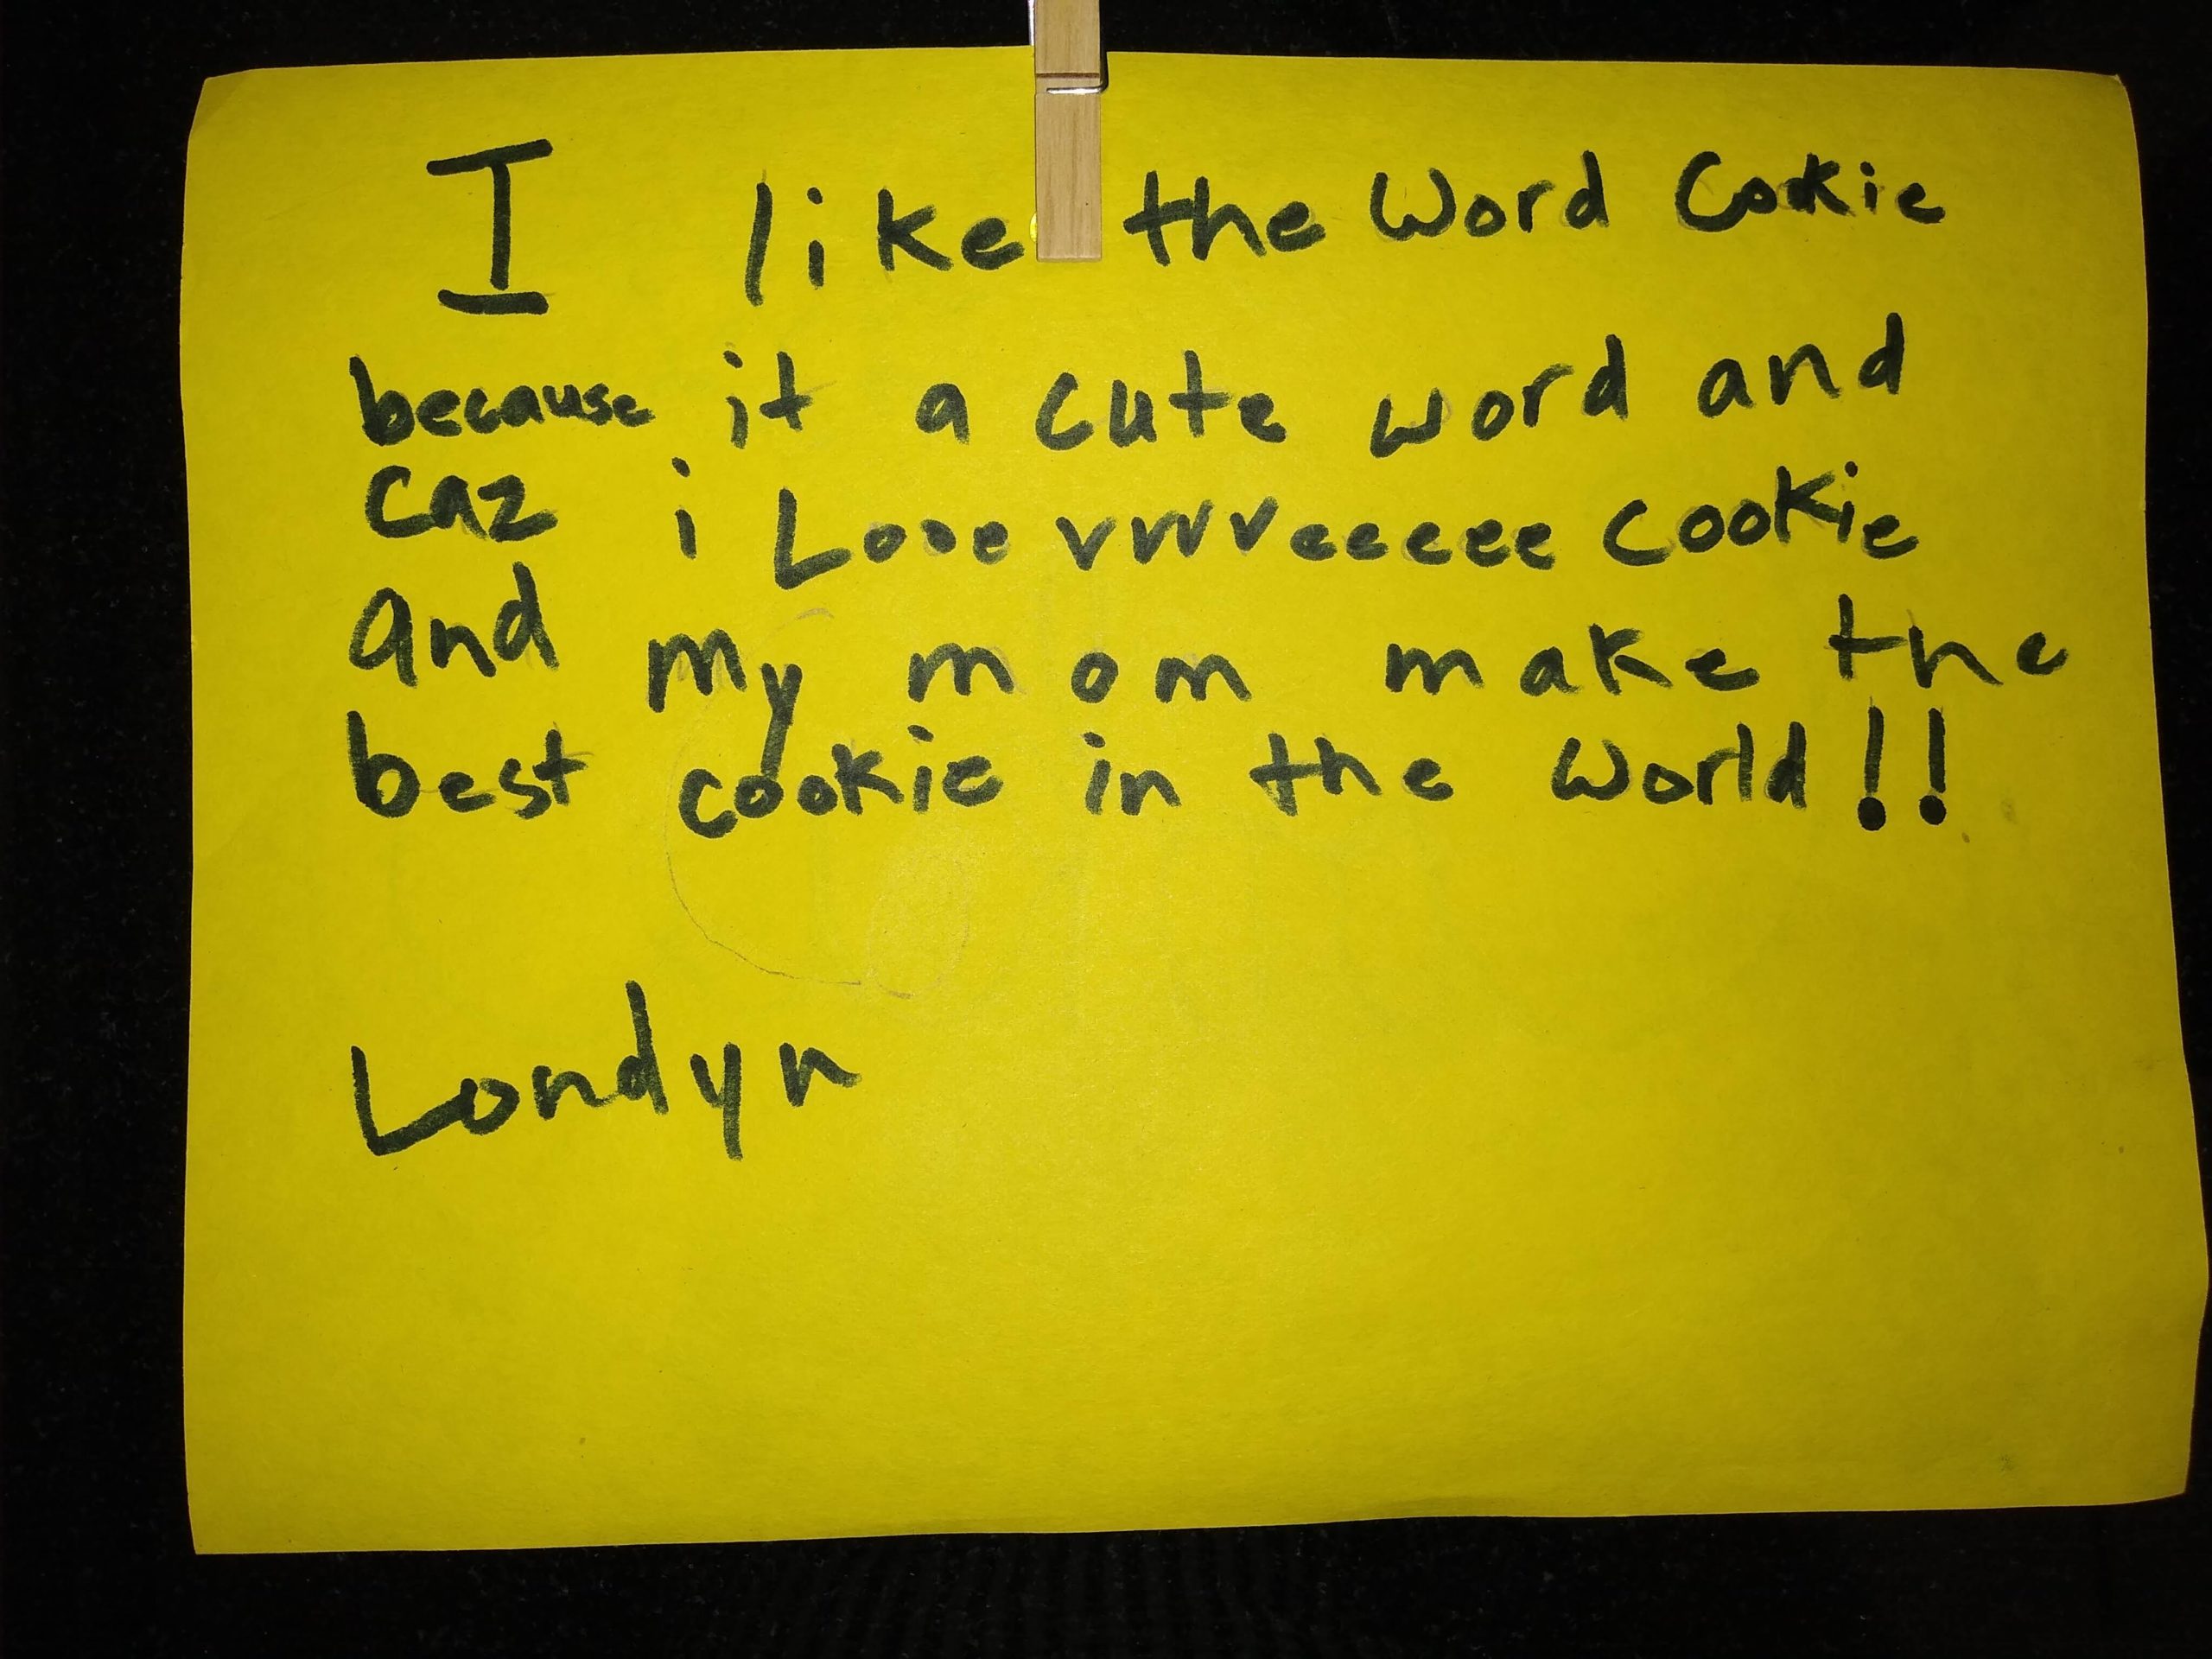 I like the Word Cookie
because it a cute word and
caz i Looo vvvveeeeee cookie
and my mom make the
best cookie in the world!!
Londyn